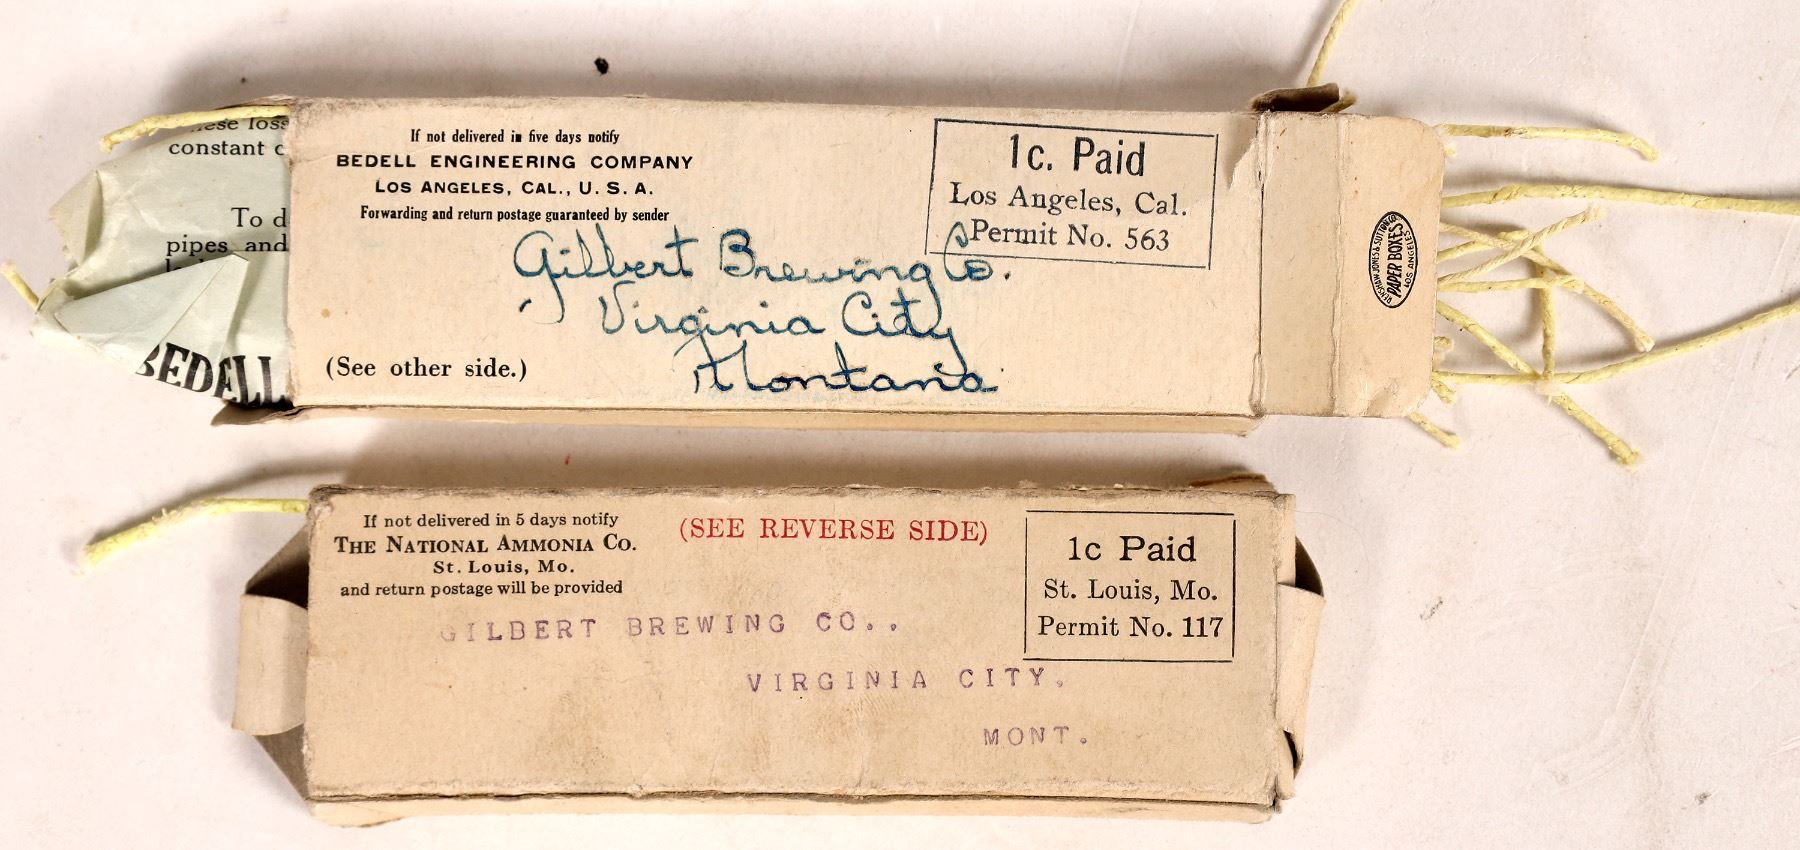 constant
To
pipes and
BEDELL
If not delivered in five days notify
BEDELL ENGINEERING COMPANY
LOS ANGELES, CAL., U. S. A.
Forwarding and return postage guaranteed by sender
1c. Paid
Los Angeles, Cal.
Permit No. 563
Gilbert Brewing Co.
Virginia City
Montana
(See other side.)
PAPER BOXES
LOS ANGELES
If not delivered in 5 days notify
THE NATIONAL AMMONIA CO.
St. Louis, Mo.
and return postage will be provided
(SEE REVERSE SIDE)
1c Paid
St. Louis, Mo.
Permit No. 117
GILBERT BREWING CO..
VIRGINIA CITY.
MONT.